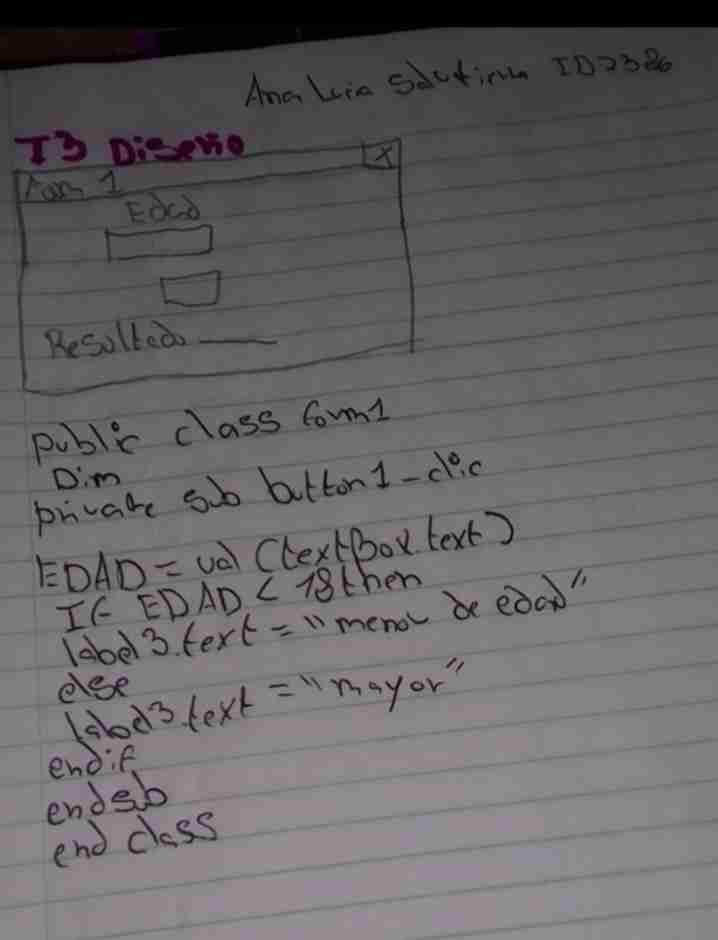 Ana Lucia ID 2386
T3 Diseño
Form 1
X
Edad
Resultado
public class form1
Dim
private sub button1_clic
EDAD = val (textbox.text)
IF EDAD < 18 then
label3.text = "menor de edad"
else
label3.text = "mayor"
endif
endsub
end class